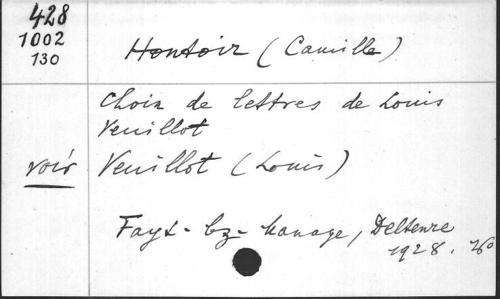 428
1002
130
Hontoir (Camille)
Choix de lettres de Louis
Veuillot
voir Veuillot (Louis)
Fayt-lez-Manage, Deltenre
1928.